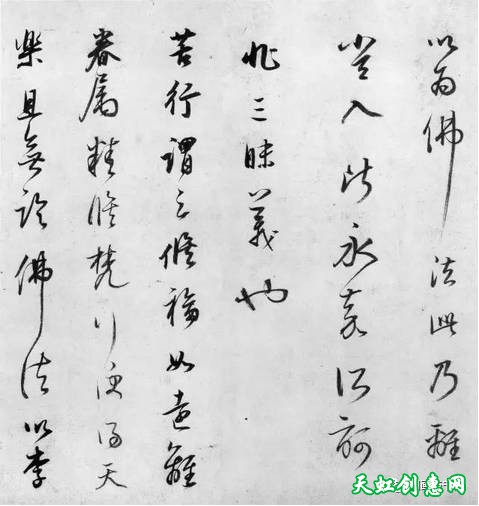 以為佛法此乃離
入此永嘉所訶
非三昧義也
苦行謂之修福如遠離
眷屬精修梵行便得天
樂且無論佛法以李
天虹创惠网